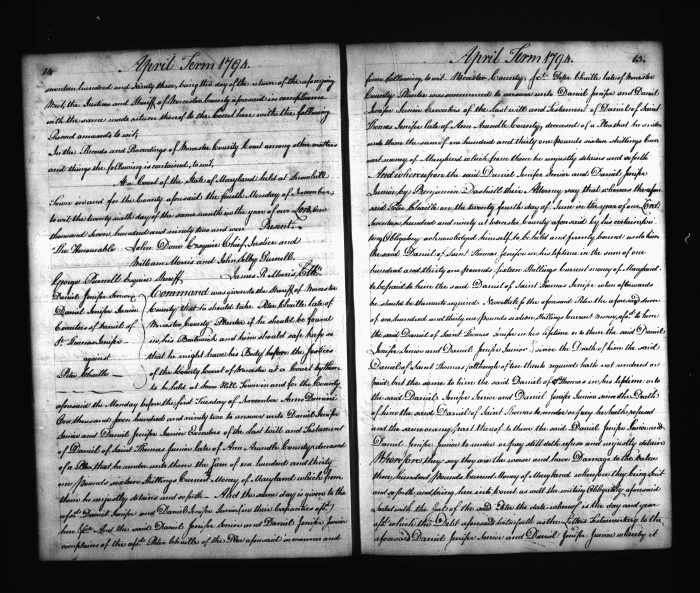 14 April Term 1794.
seventeen hundred and Ninety three, being the day of the return of the aforegoing
Writ, the Justices and Sheriff of Worcester County aforesaid in compliance
with the same made return thereof to the Court here with the following
Record annexed to wit,
In the Records and Recordings of Worcester County Court among other matters
and things the following is contained, to wit,
At a Court of the State of Maryland held at Snowhill
Town in and for the County aforesaid the fourth Monday of November,
to wit the twenty sixth day of the same month in the year of our Lord, One
thousand seven hundred and ninety two and were Present.
The Honourable John Done Esquire Chief Justice and
William Morris and John Selby Purnell
George Purnell Esquire Sheriff, James R. Morris, Clk.
Daniel Jenifer Senior
Daniel Jenifer Junior
Executors of Daniel of
St. Thomas Jenifer
against
Peter Chaille
Command was given to the Sheriff of Worcester
County that he should take Peter Chaille late of
Worcester County Planter if he should be found
in his Bailiwick and him should safe keep so
that he might have his Body before the Justices
of the County Court of Worcester at a Court by them
to be held at Snow Hill Town in and for the County
aforesaid the Monday before the first Tuesday of November Anno Domini
One thousand seven hundred and ninety two to answer unto Daniel Jenifer
Senior and Daniel Jenifer Junior Executors of the Last Will and Testament
of Daniel of Saint Thomas Jenifer late of Ann Arundle County, deceased
of a Plea that he render unto them the Sum of one hundred and thirty
one Pounds sixteen Shillings Current Money of Maryland which from
them he unjustly detains and so forth — And the same day is given to the
afsd. Daniel Jenifer and Daniel Jenifer Junior
here &c. And the said Daniel Jenifer Senior and Daniel Jenifer Junior
complains of the afsd. Peter Chaille of the Plea aforesaid in manner and
April Term 1794. 15.
form following, to wit Worcester County, Sct. Peter Chaille late of Worcester
County Planter was summoned to answer unto Daniel Jenifer and Daniel
Jenifer Junior Executors of the last will and Testament of Daniel of Saint
Thomas Jenifer late of Ann Arundle County, deceased of a Plea that he render
unto them the sum of one hundred and thirty one pounds sixteen shillings Cur
rent money of Maryland which from them he unjustly detains and so forth
And whereupon the said Daniel Jenifer Senior and Daniel Jenifer
Junior, by Benjamin Dashiell their Attorney say that whereas the afore
said Peter Chaille on the twenty fourth day of June in the year of our Lord
Seventeen hundred and ninety at Worcester County aforesaid by his certain
writing Obligatory acknowledged himself to be held and firmly bound unto him
the said Daniel of Saint Thomas Jenifer in his lifetime in the sum of one
hundred and thirty one pounds sixteen Shillings Current money of Maryland
to be paid to him the said Daniel of Saint Thomas Jenifer when afterwards
he should be thereunto required Nevertheless the aforesaid Peter the aforesaid sum
of one hundred and thirty one pounds sixteen shillings Current money, afsd. to him
the said Daniel of Saint Thomas Jenifer in his lifetime or to them the said Daniel
Jenifer Senior and Daniel Jenifer Junior since the Death of him the said
Daniel of Saint Thomas (although often thereto required) hath not rendered or
paid but the same to him the said Daniel of St. Thomas in his lifetime or to
the said Daniel Jenifer Senior and Daniel Jenifer Junior since the Death
of him the said Daniel of Saint Thomas to render or pay he hath refused
and the same or any part thereof to them the said Daniel Jenifer Senior and
Daniel Jenifer Junior to render or pay still doth refuse and unjustly detain
Wherefore they say they are the worse and have Damage to the value
three hundred pounds Current money of Maryland wherefore they bring suit
and so forth, and bring here into Court as well the writing Obligatory aforesaid
Sealed with the Seal of the said Peter the date whereof is the day and year
afsd. which the Debt aforesaid as the Letters Testamentary to the
aforesaid Daniel Jenifer Senior and Daniel Jenifer Junior whereby it